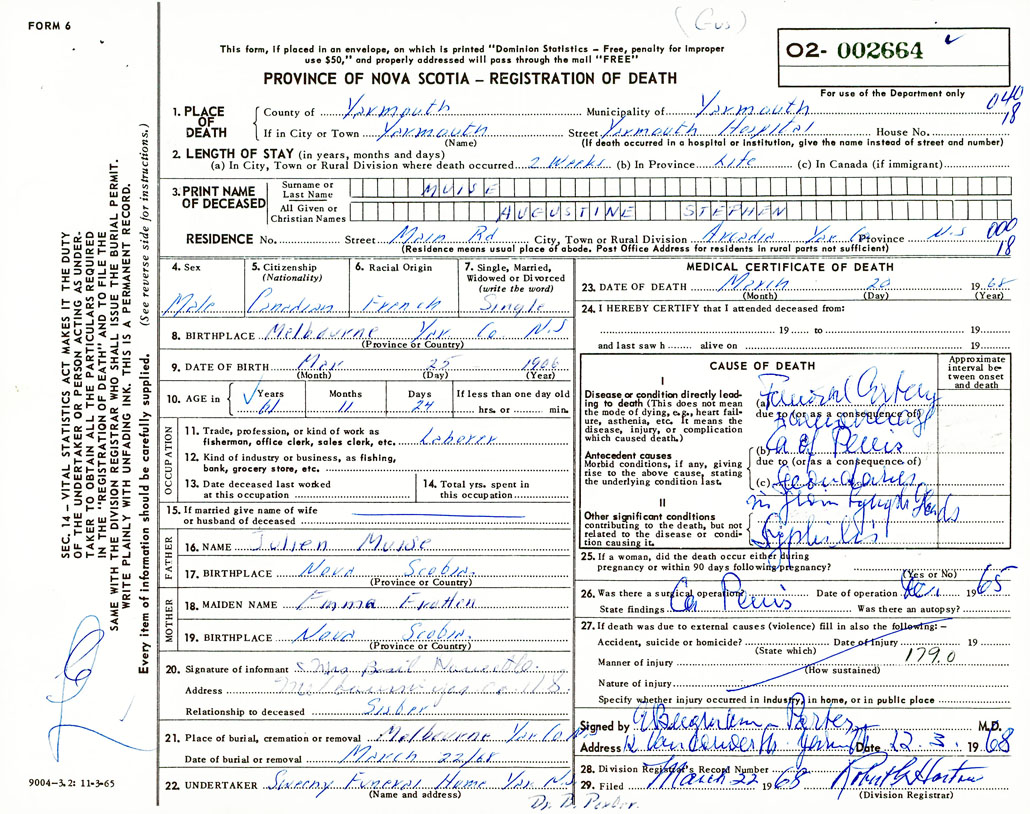 (Gus)
FORM 6
This form, if placed in an envelope, on which is printed "Dominion Statistics – Free, penalty for improper
use $50," and properly addressed will pass through the mail "FREE"
PROVINCE OF NOVA SCOTIA – REGISTRATION OF DEATH
02- 002664
For use of the Department only
040
18
1. PLACE OF DEATH
County of Yarmouth Municipality of Yarmouth
If in City or Town Yarmouth Street Yarmouth Hospital House No.
(Name) (If death occurred in a hospital or institution, give the name instead of street and number)
2. LENGTH OF STAY (in years, months and days)
(a) In City, Town or Rural Division where death occurred 2 Weeks (b) In Province Life (c) In Canada (if immigrant)
3. PRINT NAME OF DECEASED
Surname or Last Name MUISE
All Given or Christian Names AUGUSTINE STEPHEN
RESIDENCE No. Street Main Rd City, Town or Rural Division Arcadia Yar Co Province N.S
(Residence means usual place of abode. Post Office Address for residents in rural parts not sufficient)
000
18
4. Sex
Male
5. Citizenship
(Nationality)
Canadian
6. Racial Origin
French
7. Single, Married,
Widowed or Divorced
(write the word)
Single
8. BIRTHPLACE Melbourne Yar Co N.S
(Province or Country)
9. DATE OF BIRTH Mar 25 1906
(Month) (Day) (Year)
10. AGE in Years Months Days If less than one day old
61 11 24 hrs. or min.
OCCUPATION
11. Trade, profession, or kind of work as
fisherman, office clerk, sales clerk, etc. Laborer
12. Kind of industry or business, as fishing,
bank, grocery store, etc.
13. Date deceased last worked
at this occupation
14. Total yrs. spent in
this occupation
15. If married give name of wife
or husband of deceased
FATHER
16. NAME Julien Muise
17. BIRTHPLACE Nova Scotia.
(Province or Country)
MOTHER
18. MAIDEN NAME Emma
19. BIRTHPLACE Nova Scotia.
(Province or Country)
20. Signature of informant Mrs Basil
Address Melbourne Yar Co N.S.
Relationship to deceased Sister
21. Place of burial, cremation or removal Melbourne Yar Co N.S
Date of burial or removal March 22/68
22. UNDERTAKER Sweeny Funeral Home Yar N.S
(Name and address)
MEDICAL CERTIFICATE OF DEATH
23. DATE OF DEATH March 20 1968
(Month) (Day) (Year)
24. I HEREBY CERTIFY that I attended deceased from:
19 to 19
and last saw h alive on 19
CAUSE OF DEATH
Approximate
interval be-
tween onset
and death
I
Disease or condition directly lead-
ing to death (This does not mean
the mode of dying, e.g., heart fail-
ure, asthenia, etc. It means the
disease, injury, or complication
which caused death.)
(a) Femoral Artery
due to (or as a consequence of)
Antecedent causes
Morbid conditions, if any, giving
rise to the above cause, stating
the underlying condition last.
(b) Ca of Penis
due to (or as a consequence of)
(c) Secondaries
in Groin Lymph Glands
II
Other significant conditions
contributing to the death, but not
related to the disease or condi-
tion causing it.
Syphilis
25. If a woman, did the death occur either during
pregnancy or within 90 days following pregnancy?
(Yes or No)
26. Was there a surgical operation? Date of operation 1965
State findings Ca Penis Was there an autopsy?
27. If death was due to external causes (violence) fill in also the following: –
Accident, suicide or homicide? Date of Injury 19
(State which)
179.0
Manner of injury
(How sustained)
Nature of injury
Specify whether injury occurred in industry, in home, or in public place
Signed by Porter M.D.
Address Vancouver St. Yarmouth Date 22.3. 1968
28. Division Registrar's Record Number
29. Filed March 22 1968
(Division Registrar)
Dr. B. Porter.
SEC. 14 – VITAL STATISTICS ACT MAKES IT THE DUTY
OF THE UNDERTAKER OR PERSON ACTING AS UNDER-
TAKER TO OBTAIN ALL THE PARTICULARS REQUIRED
IN THE "REGISTRATION OF DEATH" AND TO FILE THE
SAME WITH THE DIVISION REGISTRAR WHO SHALL ISSUE THE BURIAL PERMIT.
WRITE PLAINLY WITH UNFADING INK. THIS IS A PERMANENT RECORD.
Every item of information should be carefully supplied. (See reverse side for instructions.)
9004–3.2: 11-3-65